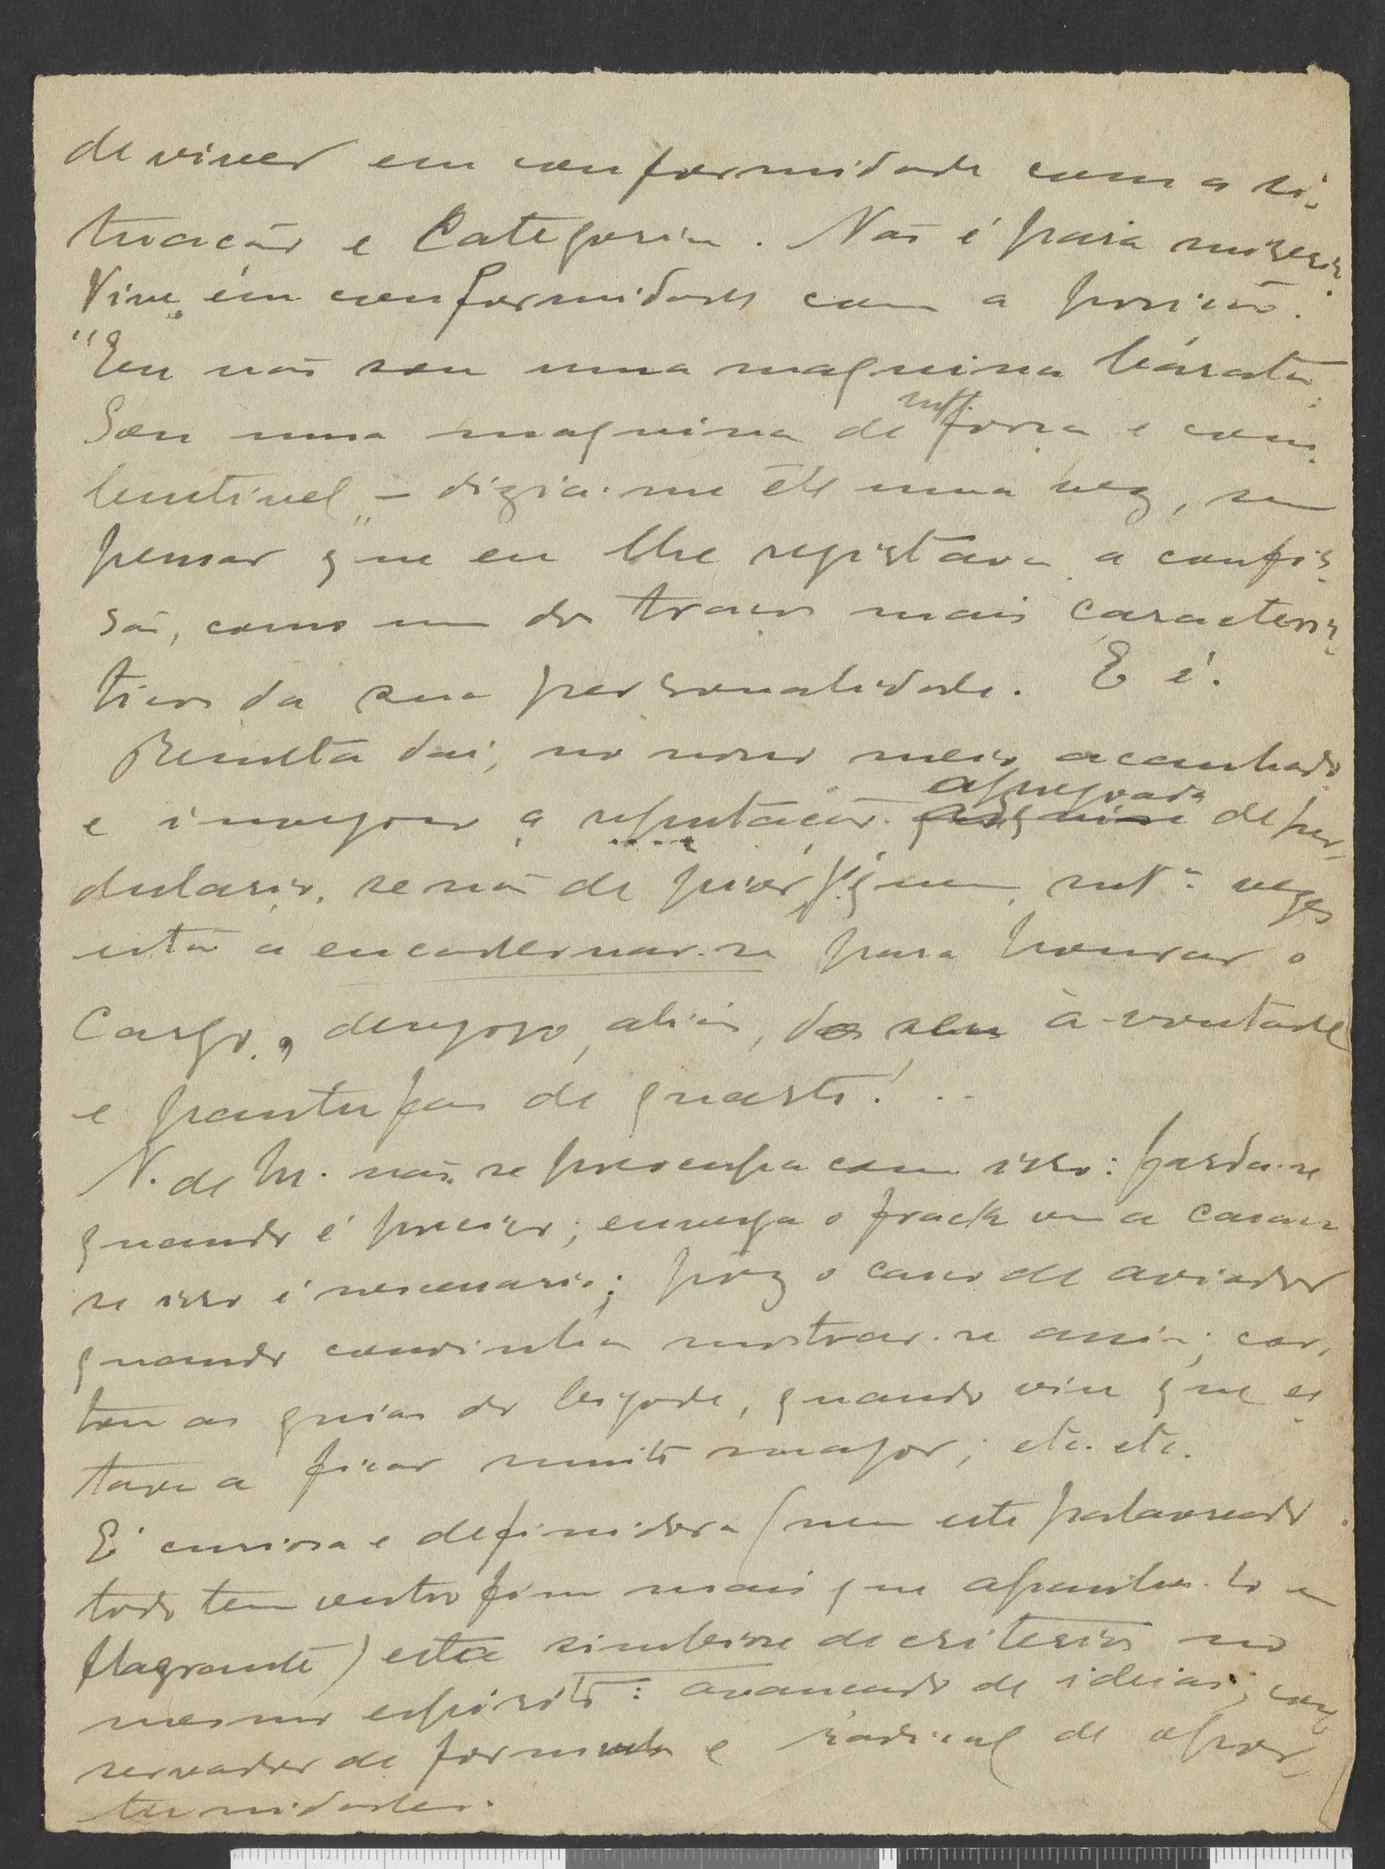 de viver em conformidade com a si-
tuação e Categoria. Não é para miseria.
Vive em conformidade com a posição.
"Eu não sou uma maquina barata.
Sou uma maquina de mtª força e com-
bustivel" – dizia-me êle uma vez, sem
pensar que eu lhe registava a confis-
são, como um dos traços mais caracterís-
ticos da sua personalidade. E é.
Resulta daí, no nosso meio acanhado
e invejoso a reputação apregoada de per-
dulario, senão de peor, quem mtas vezes
está a encadernar-se para honrar o
Cargo, desejoso, aliás, do seu à-vontade
e pantufas de quarto!..
N. de M. não se preocupa com isso: farda-se
quando é preciso; enverga o frack ou a casaca
se isso é necessario; poz o casco de aviador
quando convinha mostrar-se assim; cor-
tou as guias do bigode, quando viu que es-
tava a ficar muito major; etc. etc.
É curiosa e definidora (nem este palavreado
todo tem outro fim mais que apanha-lo em
flagrante) esta simbiose de criterios no
mesmo espírito: avançado de ideias; con-
servador de formula e radical de opor-
tunidades.